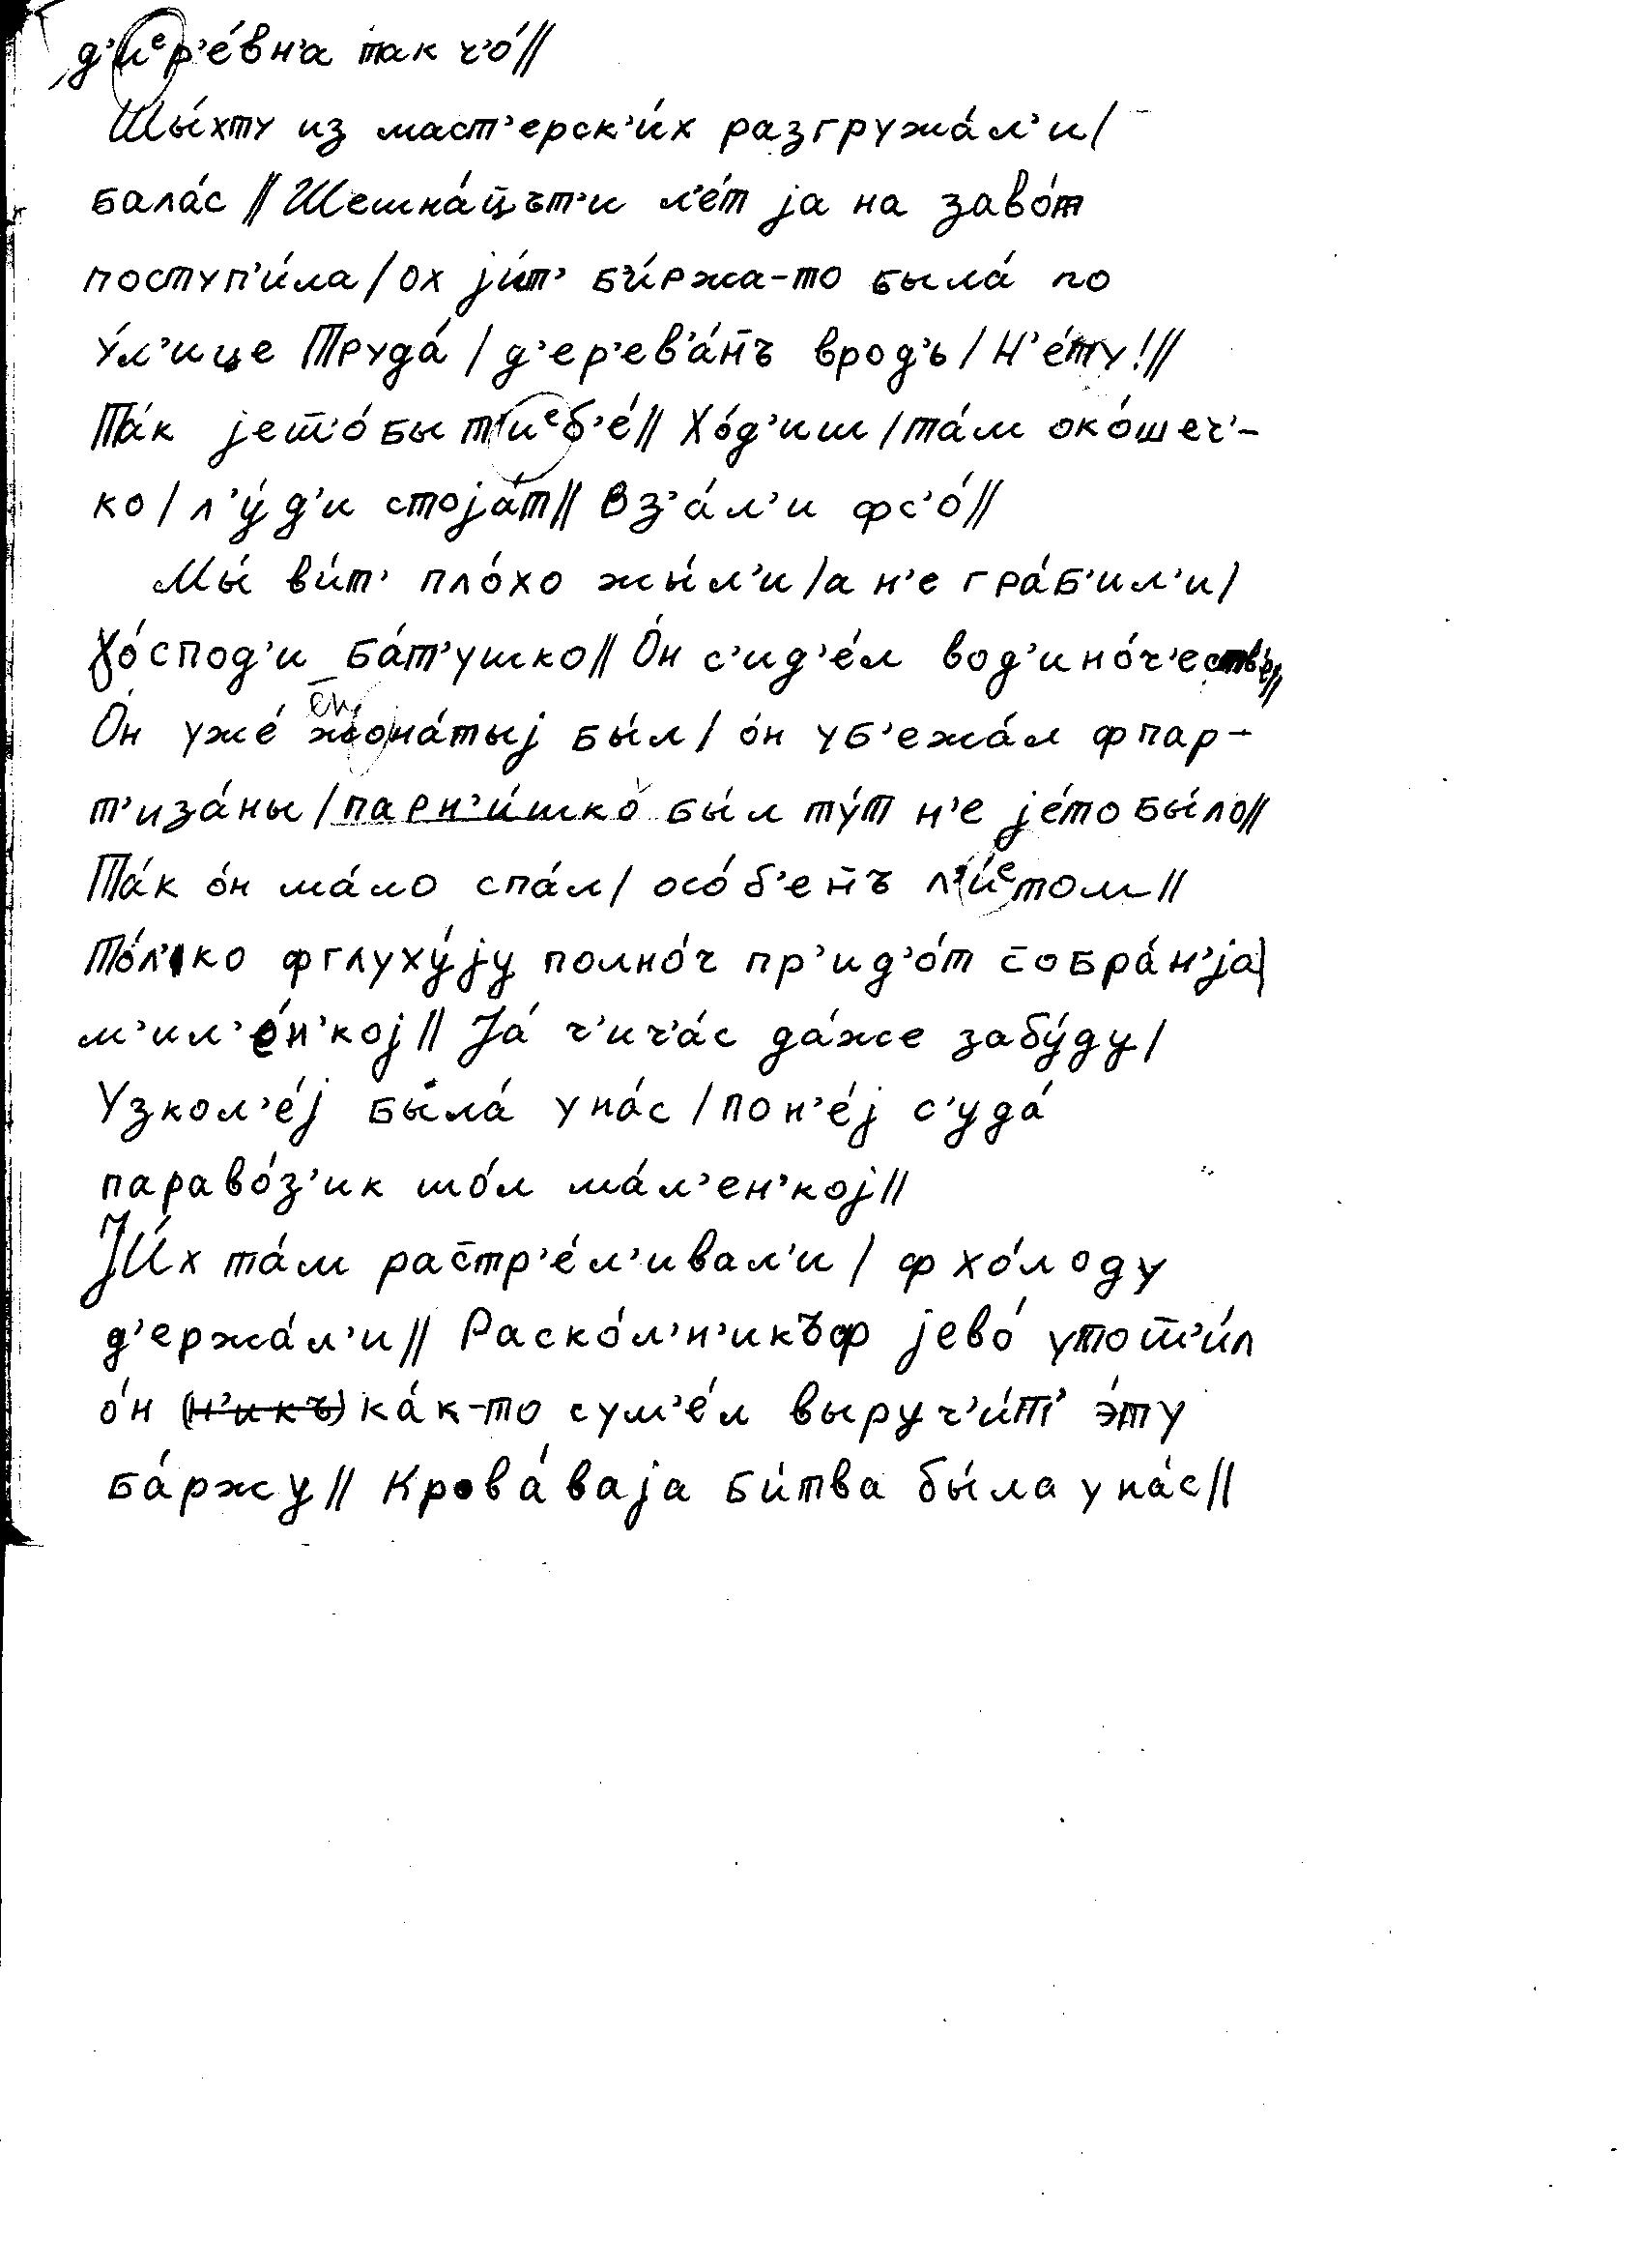 д'иᵉр'е́вн'а так ч'о́//
Шы́хту из маст'ерск'и́х разгружа́л'и/
бала́с // Шешна́ц̄ът'и л'е́т jа на заво́т
поступ'и́ла / ох jи́т' б'и́ржа-то была́ по
у́л'ице Труда́ / д'ер'ев'а́н̄ъ врод'ь / Н'е́ту! //
Та́к jет̄'о́бы т'иᵉб'е́ // Хо́д'иш / та́м око́шеч'-
ко / л'у́д'и стоjа́т // Вз'а́л'и фс'о́ //
Мы́ ви́т' пло́хо жы́л'и / а н'е гра́б'ил'и /
Ɣо́спод'и ба́т'ушко // О́н с'ид'е́л вод'ино́ч'еств'е //
О́н уже́ жона́тыj бы́л / о́н уб'ежа́л фпар-
т'иза́ны / парн'и́шко бы́л ту́т н'е jе́то бы́ло //
Та́к о́н ма́ло спа́л / осо́б'ен̄ъ л'и́ᵉтом //
То́л'ко фглуху́jу полно́ч пр'ид'о́т с̄обра́н'jа /
м'ил'е́н'коj // Jа́ ч'ич'а́с да́же забу́ду /
Узкол'е́j была́ уна́с / пон'е́j с'уда́
параво́з'ик шо́л ма́л'ен'коj //
Jи́х та́м рас̄тр'е́л'ивал'и / фхо́лоду
д'ержа́л'и // Раско́л'н'икъф jево́ утот'и́л
о́н (н'икъ) ка́к-то сум'е́л выруч'и́т' э́ту
ба́ржу // Крова́ваjа би́тва бы́ла уна́с //